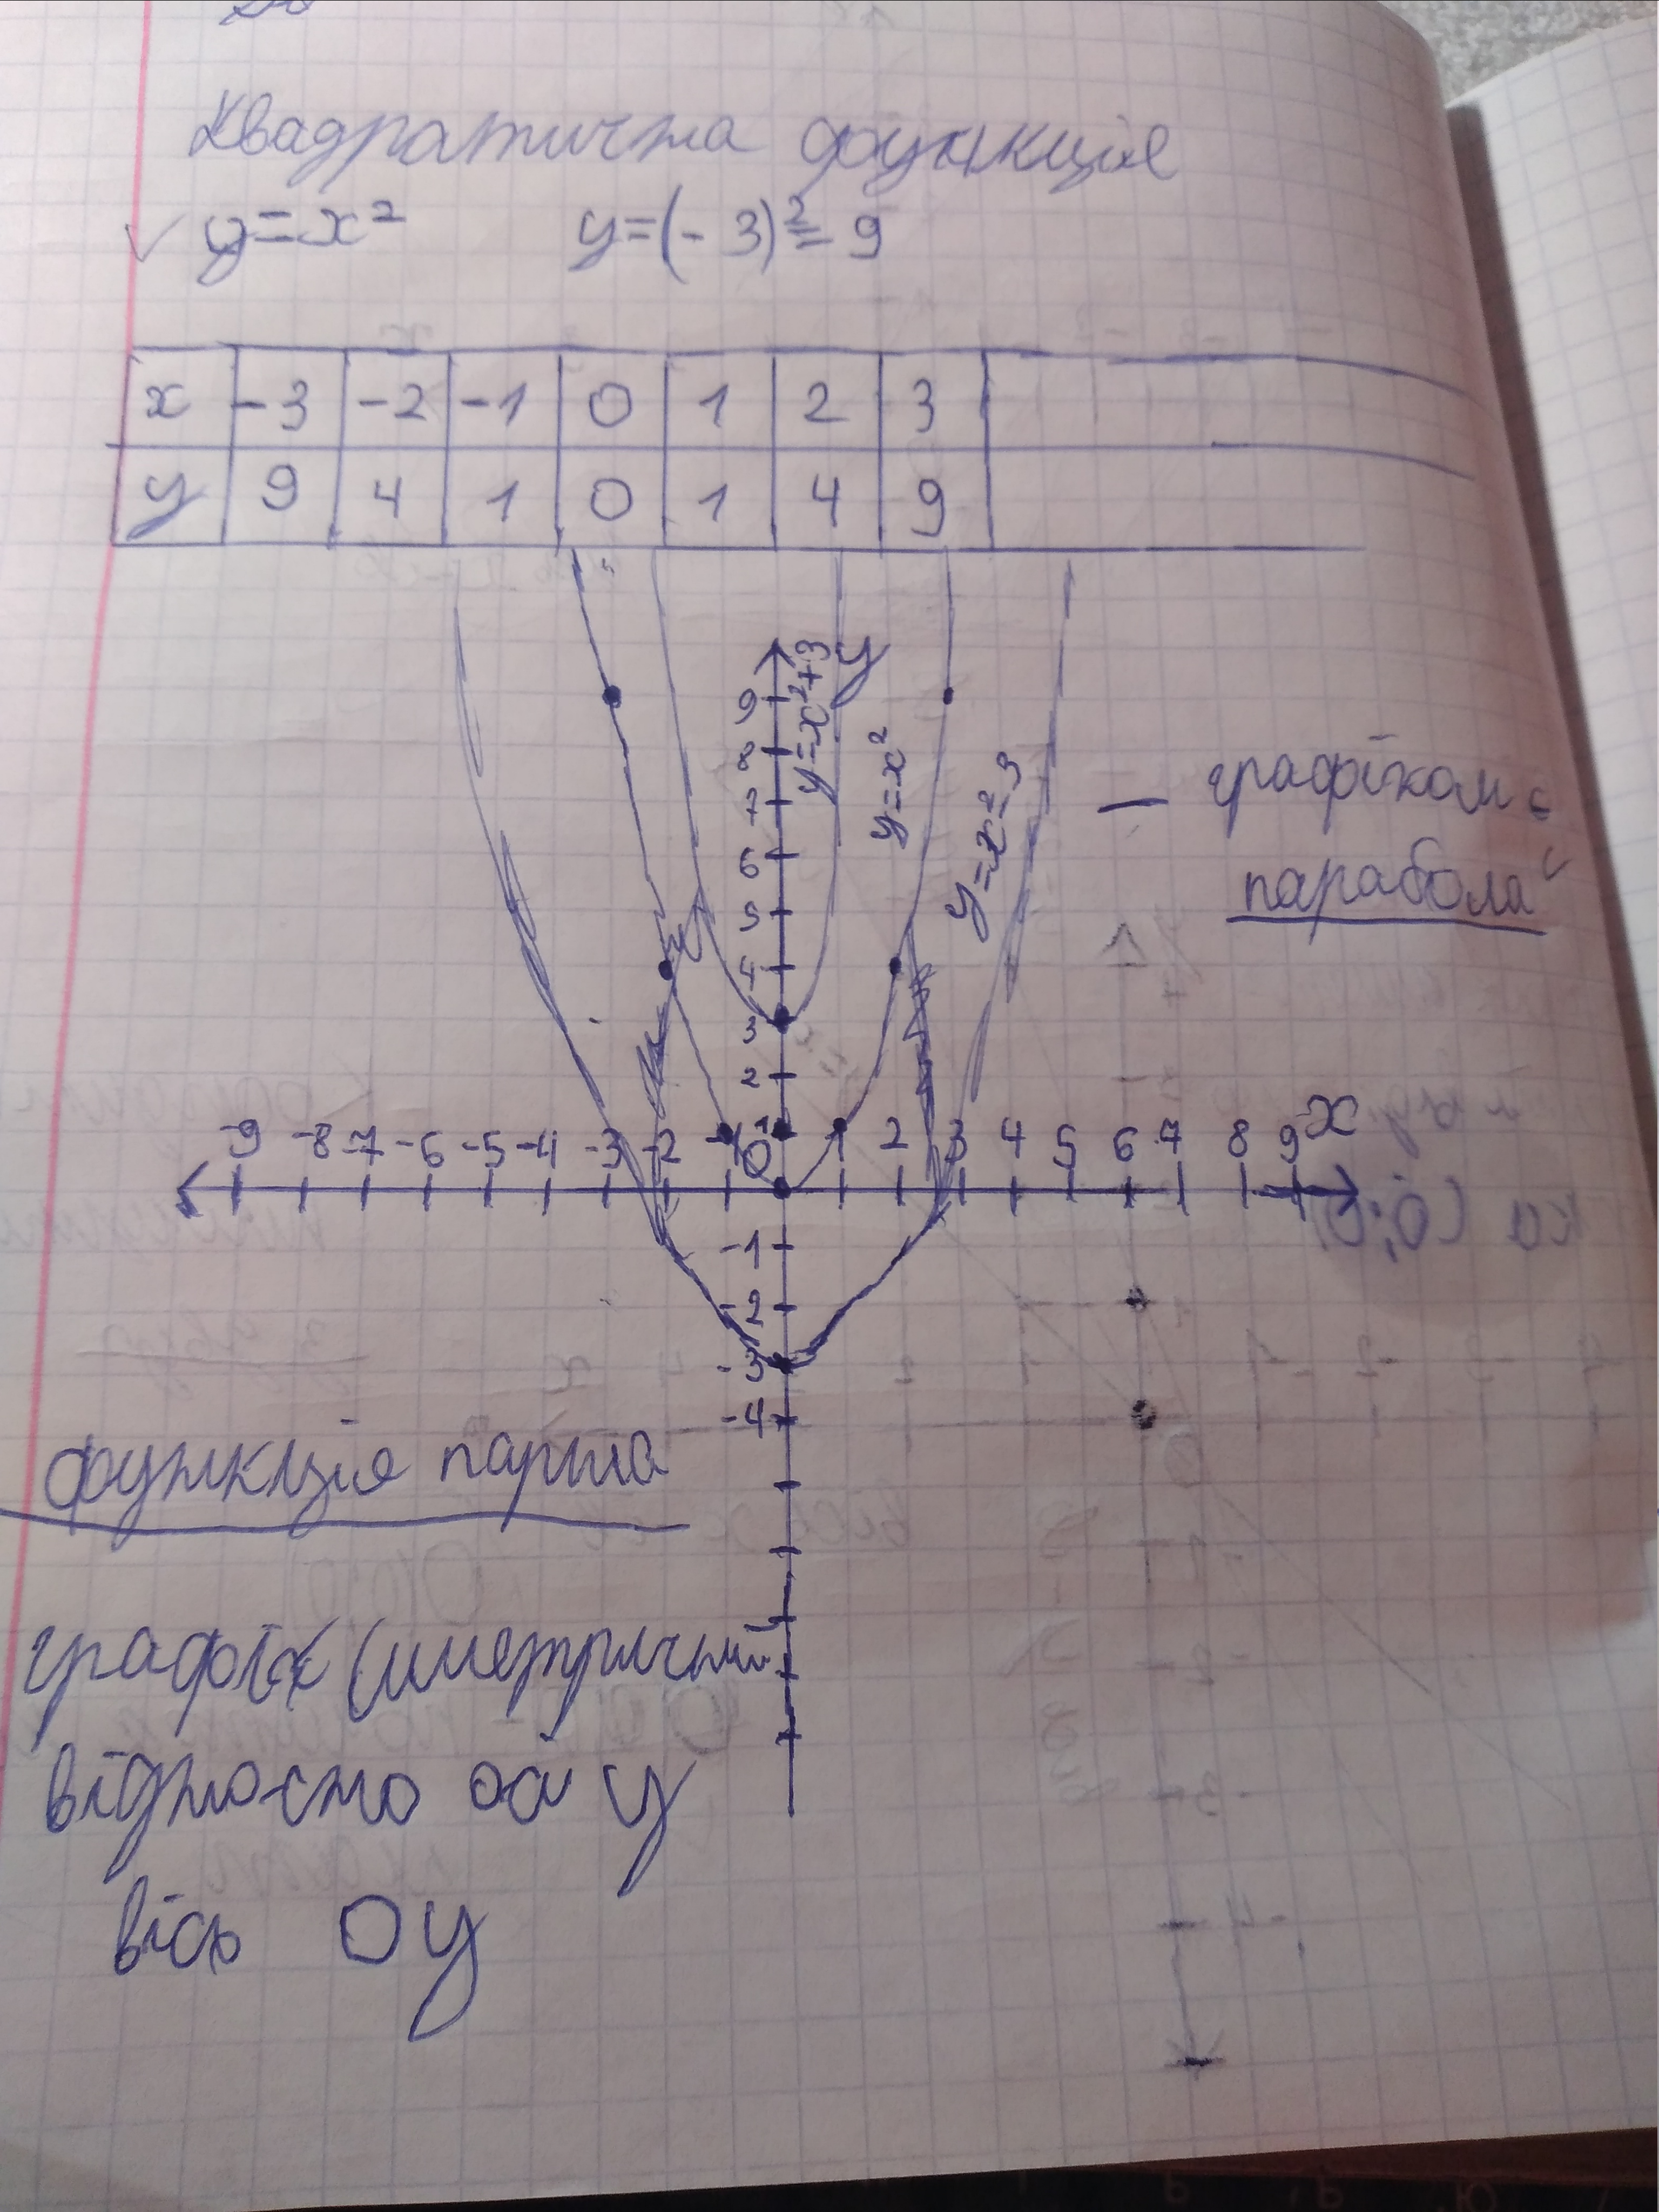 Квадратична функція
y=x² y=(-3)²=9
x -3 -2 -1 0 1 2 3
y 9 4 1 0 1 4 9
y
y=x²+3
y=x²
y=x²-3
9
8
7
6
5
4
3
2
1
– графіком є
парабола
-9 -8 -7 -6 -5 -4 -3 -2 -1 0 1 2 3 4 5 6 7 8 9 x
-1
-2
-3
-4
функція парна
графік симетричний
відносно осі y
вісь OY